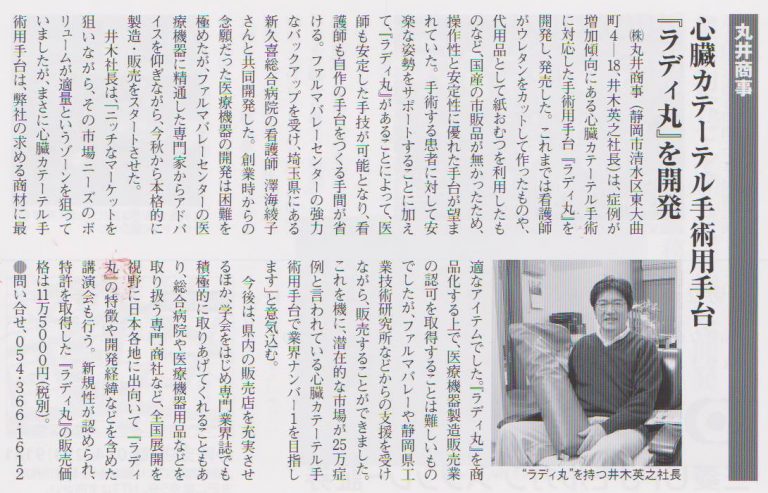 丸井商事
心臓カテーテル手術用手台
『ラディ丸』を開発
㈱丸井商事（静岡市清水区東大曲
町4―18、井木英之社長）は、症例が
増加傾向にある心臓カテーテル手術
に対応した手術用手台『ラディ丸』を
開発し、発売した。これまでは看護師
がウレタンをカットして作ったものや、
代用品として紙おむつを利用したも
のなど、国産の市販品が無かったため、
操作性と安定性に優れた手台が望ま
れていた。手術する患者に対して安
楽な姿勢をサポートすることに加え
て、『ラディ丸』があることによって、医
師も安定した手技が可能となり、看
護師も自作の手台をつくる手間が省
ける。ファルマバレーセンターの強力
なバックアップを受け、埼玉県にある
新久喜総合病院の看護師 澤海綾子
さんと共同開発した。創業時からの
念願だった医療機器の開発は困難を
極めたが、ファルマバレーセンターの医
療機器に精通した専門家からアドバ
イスを仰ぎながら、今秋から本格的に
製造・販売をスタートさせた。
井木社長は、「ニッチなマーケットを
狙いながら、その市場ニーズのボ
リュームが適量というゾーンを狙って
いましたが、まさに心臓カテーテル手
術用手台は、弊社の求める商材に最
適なアイテムでした。『ラディ丸』を商
品化する上で、医療機器製造販売業
の認可を取得することは難しいもの
でしたが、ファルマバレーや静岡県工
業技術研究所などからの支援を受け
ながら、販売することができました。
これを機に、潜在的な市場が25万症
例と言われている心臓カテーテル手
術用手台で業界ナンバー1を目指し
ます」と意気込む。
今後は、県内の販売店を充実させ
るほか、学会をはじめ専門業界誌でも
積極的に取りあげてくれることもあ
り、総合病院や医療機器用品などを
取り扱う専門商社など、全国展開を
視野に日本各地に出向いて『ラディ
丸』の特徴や開発経緯などを含めた
講演会も行う。新規性が認められ、
特許を取得した『ラディ丸』の販売価
格は11万5000円（税別）。
●問い合せ、054・366・1612
“ラディ丸”を持つ井木英之社長